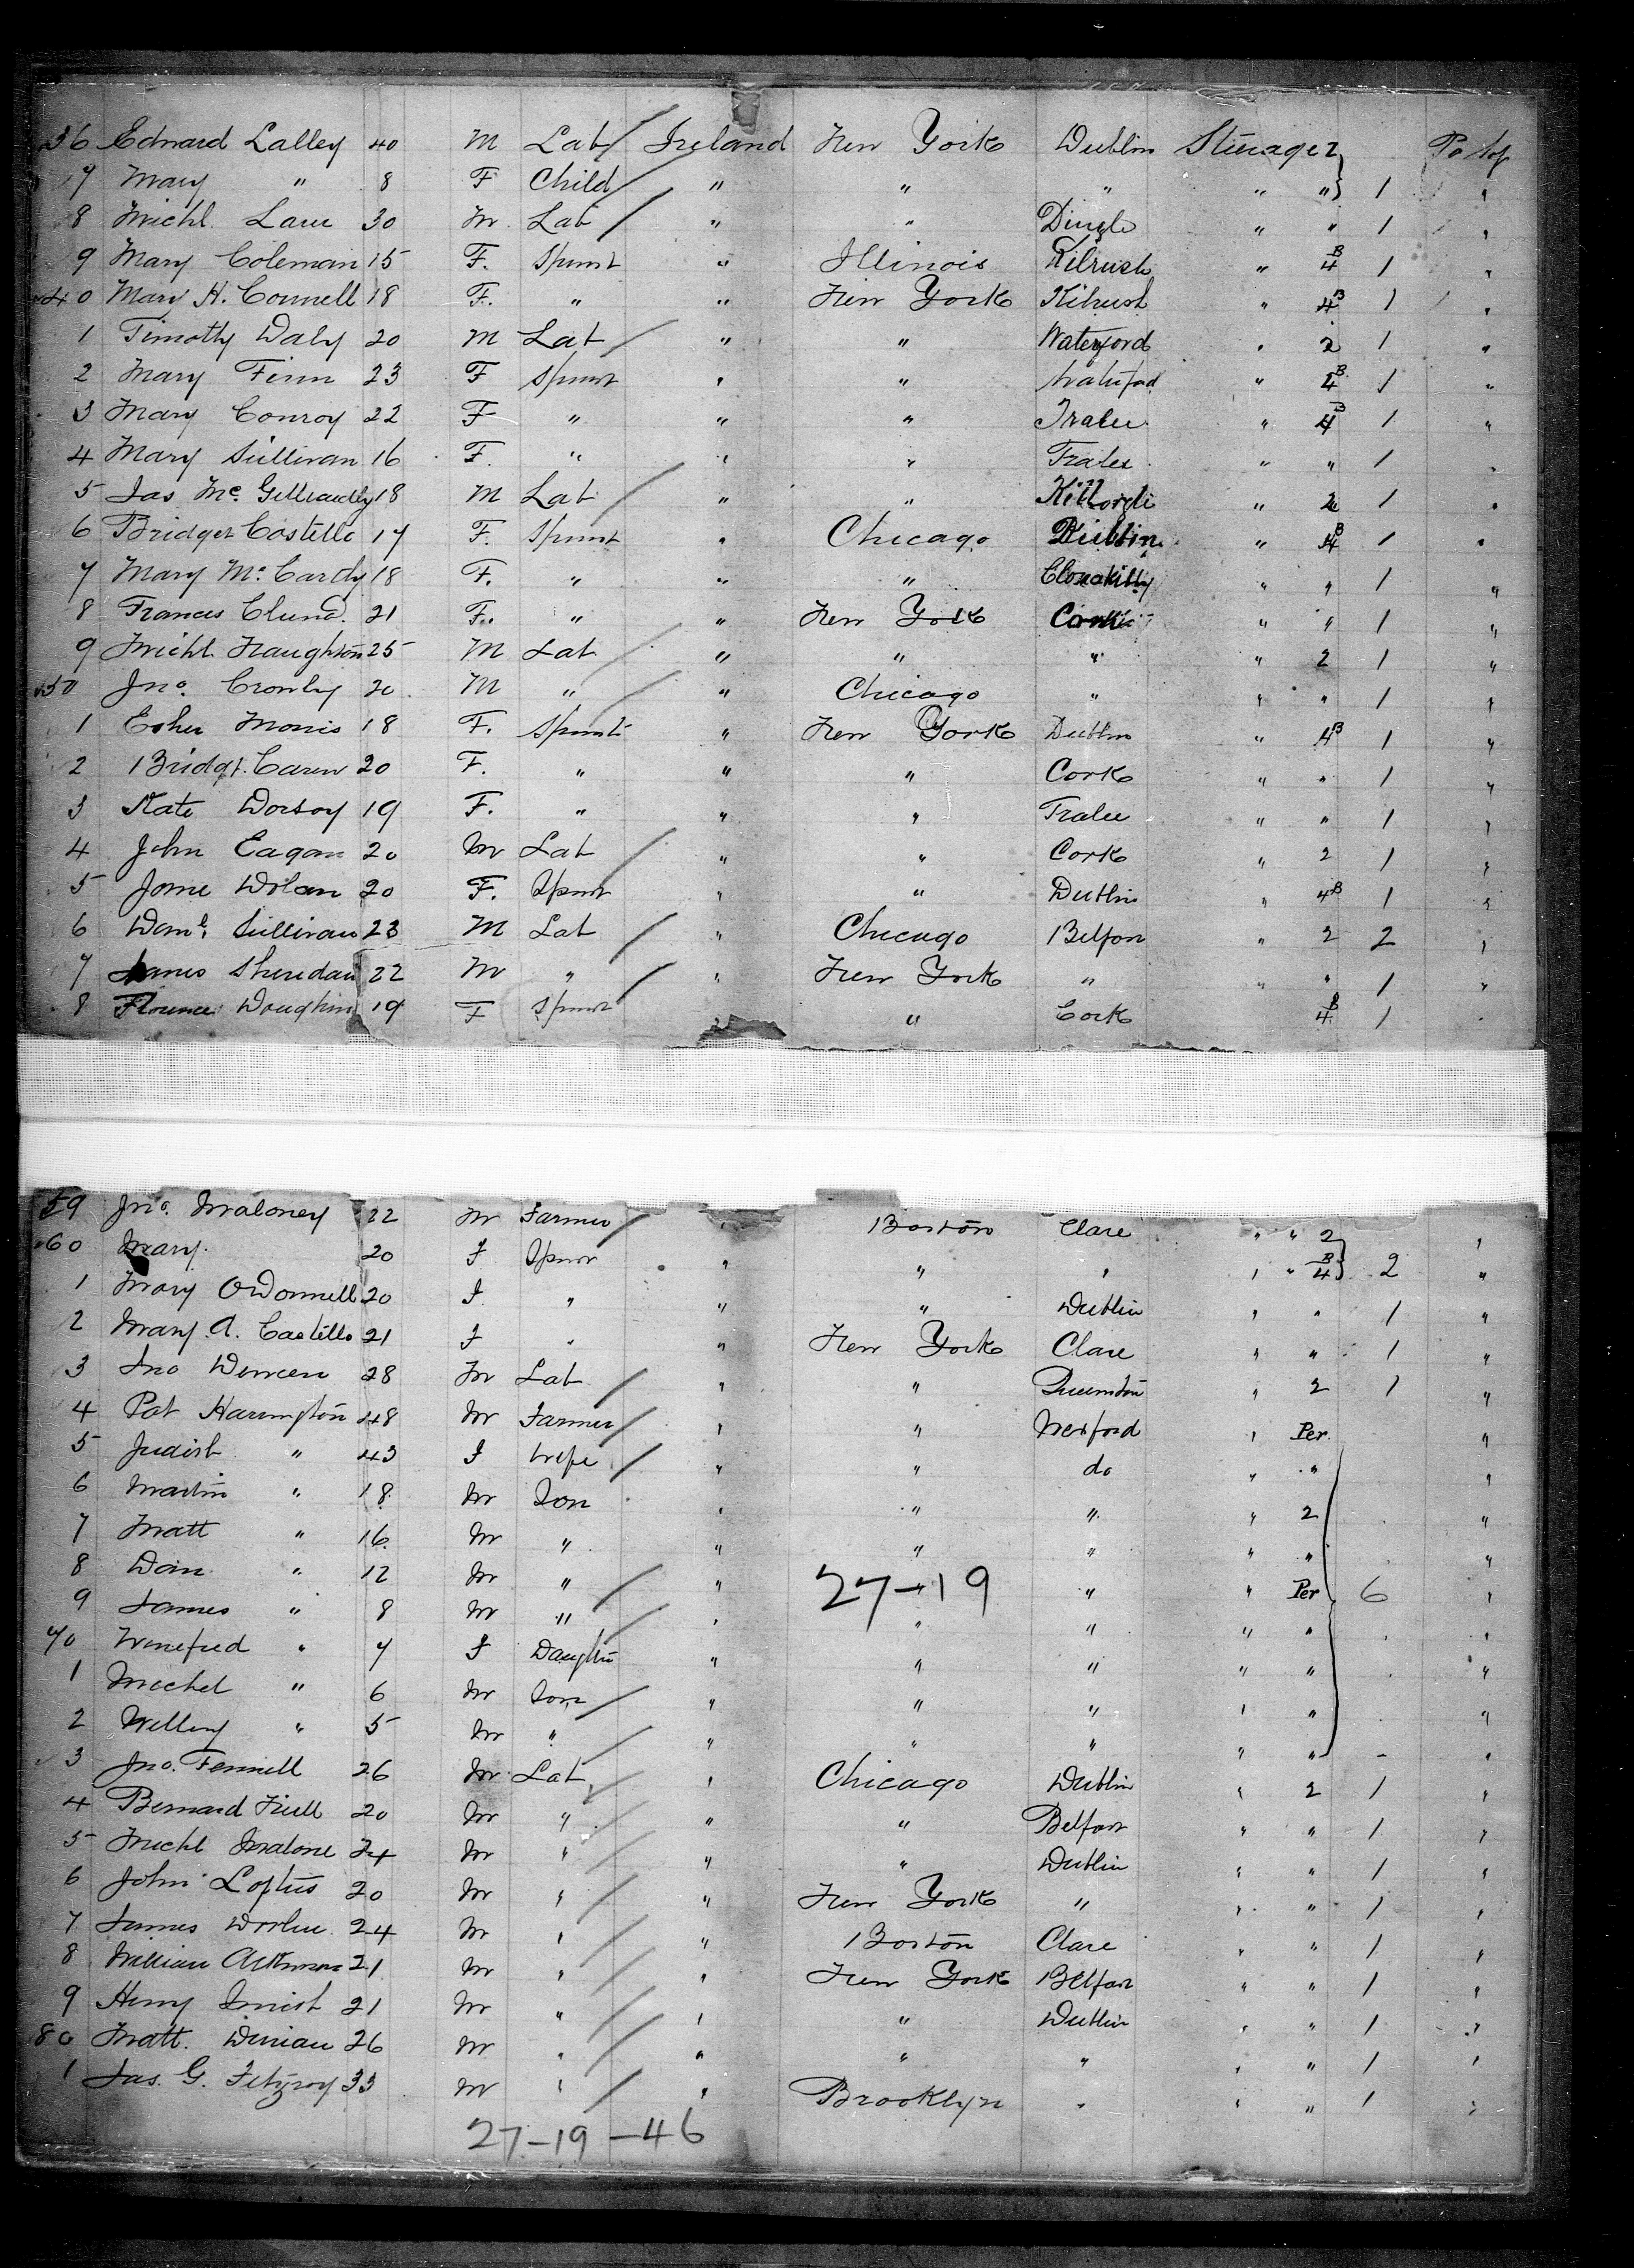 36 Edward Lalley 40 M Lab Ireland New York Dublin Steerage 2
7 Mary " 8 F Child " " " " " 1 "
8 Michl. Lane 30 M. Lab " " Dingle " " 1 "
9 Mary Coleman 15 F. Spinst " Illinois Kilrush " 4B 1 "
40 Mary H. Connell 18 F. " " New York Kilrush " 4B 1 "
1 Timothy Daly 20 M Lab " " Waterford " 2 1 "
2 Mary Finn 23 F Spinst " " Waterford " 4B 1 "
3 Mary Conroy 22 F " " " Tralee " 4B 1 "
4 Mary Sullivan 16 F. " " " Tralee " " 1 "
5 Jas Mc 18 M Lab " " " 2 1 "
6 Bridget Costello 17 F. Spinst " Chicago Dublin " 4B 1 "
7 Mary McCardy 18 F. " " " Clonakilty " " 1 "
8 Frances 21 F. " " New York Cork " " 1 "
9 Michl Naughton 25 M Lab " " " " 2 1 "
50 Jno. Crowley 20 M " " Chicago " " " 1 "
1 Esher Morris 18 F. Spinst " New York Dublin " 4B 1 "
2 Bridgt. Caren 20 F. " " " Cork " " 1 "
3 Kate Dorsey 19 F. " " " Tralee " " 1 "
4 John Eagan 20 M Lab " " Cork " 2 1 "
5 Jane Dolan 20 F. Spinst " " Dublin " 4B 1 "
6 Danl. Sullivan 23 M Lab " Chicago Belfast " 2 2 "
7 James Sheridan 22 M " " New York " " " 1 "
8 Florence 19 F Spinst " Cork 4B 1 "
59 Jno. Maloney 22 M Farmer " Boston Clare " " 2 "
60 Mary. 20 F Spinst " " " " " 4B 2 "
1 Mary O'Donnell 20 F " " " Dublin " " 1 "
2 Mary A. Castello 21 F " " New York Clare " " 1 "
3 Jno 28 M Lab " " Queenston " 2 1 "
4 Pat Harrington 48 M Farmer " " Wexford " Per. "
5 Judith " 43 F Wife " " do " " "
6 Martin " 18 M Son " " " " 2 "
7 Matt " 16 M " " " " " " "
8 Dan " 12 M " " 27-19 " " Per 6 "
9 James " 8 M " " " " " " "
70 Winefred " 7 F Daughter " " " " " "
1 Michel " 6 M Son " " " " " "
2 Willey " 5 M " " " " " " - "
3 Jno. Fennell 26 M Lab " Chicago Dublin " 2 1 "
4 Bernard 20 M " " " Belfast " " 1 "
5 Michl Malone 24 M " " " Dublin " " 1 "
6 John Loftus 20 M " " New York " " " 1 "
7 James 24 M " " Boston Clare " " 1 "
8 William 21 M " " New York Belfast " " 1 "
9 Henry Smith 21 M " " " Dublin " " 1 "
80 Matt. 26 M " " " " " " 1 "
1 Jas. G. Fitzroy 33 M " " Brooklyn " " " 1 "
27-19-46